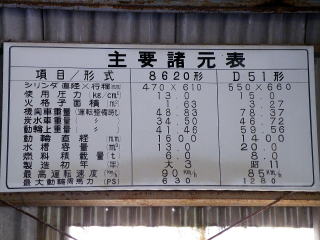 主要諸元表
項目/形式 8620形 D51形
シリンダ直径×行程 mm 470×610 550×660
使用圧力 kg/cm² 13.0 15.0
火格子面積 m² 1.63 3.27
機関車重量(運転整備時)t 48.83 78.37
炭水車重量 〃 34.50 46.72
動輪上重量 〃 41.48 59.56
動輪直径 mm 1600 1400
水槽容量 m³ 13.0 20.0
燃料積載量 t 6.0 8.0
製造初年 年 大3 昭11
最高運転速度 km/h 90km/h 85km/h
最大動輪周馬力(PS) 630 1280